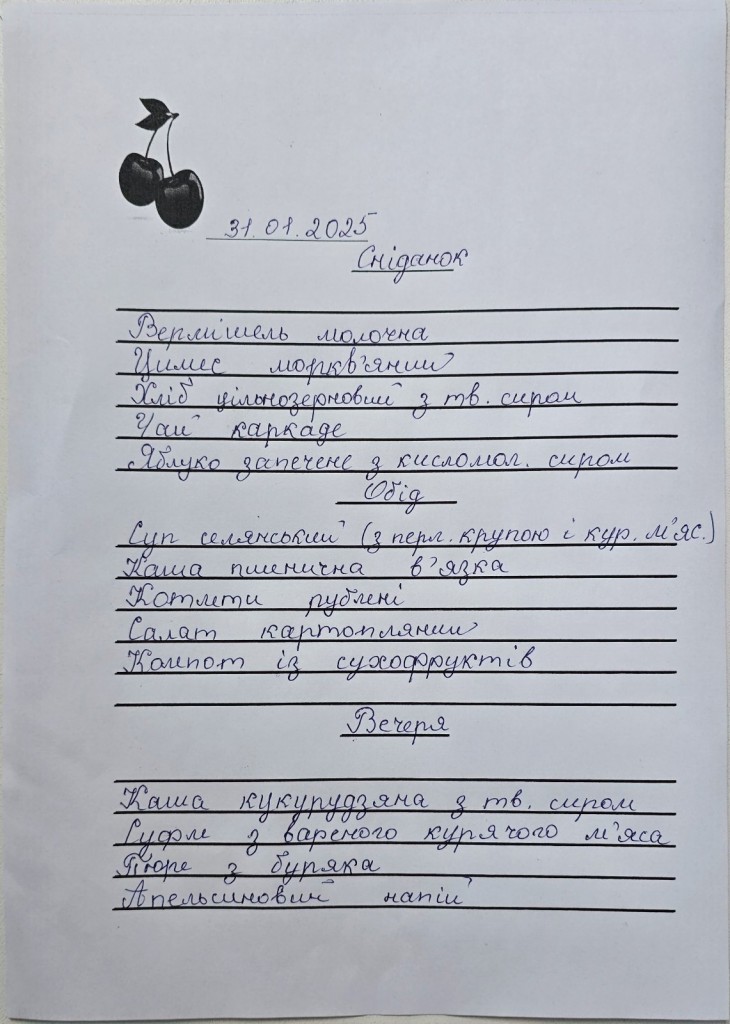 31.01.2025
Сніданок
Вермішель молочна
Цимес морквʼяний
Хліб цільнозерновий з тв. сиром
Чай каркаде
Яблуко запечене з кисломол. сиром
Обід
Суп селянський (з перл. крупою і кур. мʼяс.)
Каша пшенична вʼязка
Котлети рублені
Салат картопляний
Компот із сухофруктів
Вечеря
Каша кукурудзяна з тв. сиром
Суфле з вареного курячого мʼяса
Пюре з буряка
Апельсиновий напій